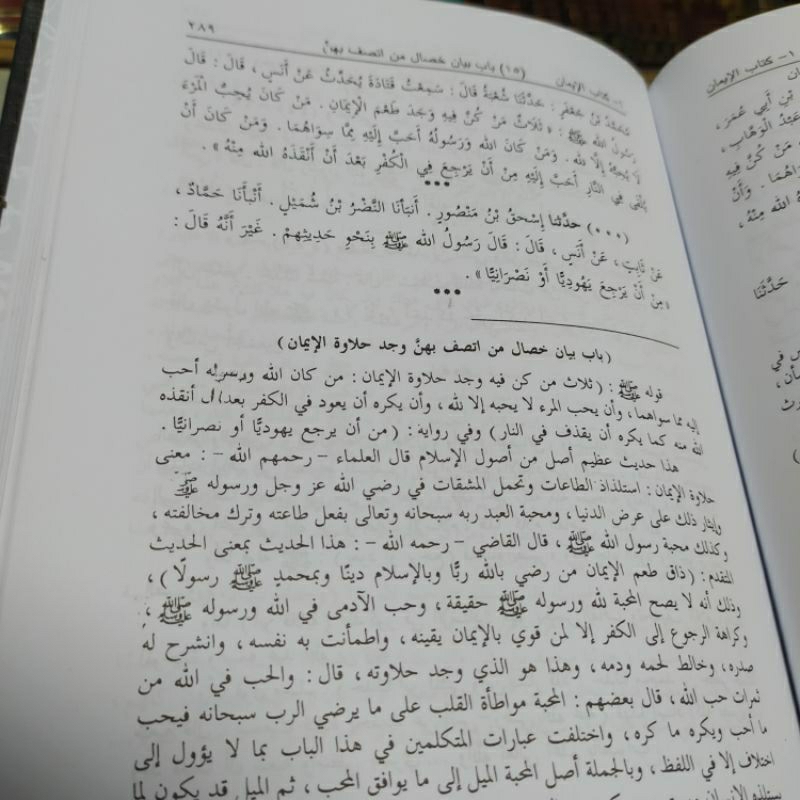 ١- كتاب الإيمان (١٥) باب بيان خصال من اتصف بهنَّ ٢٨٩
مُحَمَّدُ بْنُ جَعْفَرٍ : حَدَّثَنَا شُعْبَةُ قَالَ : سَمِعْتُ قَتَادَةَ يُحَدِّثُ عَنْ أَنَسٍ ، قَالَ : قَالَ
رَسُولُ اللهِ ﷺ : «ثَلَاثٌ مَنْ كُنَّ فِيهِ وَجَدَ طَعْمَ الْإِيمَانِ . مَنْ كَانَ يُحِبُّ الْمَرْءَ
لَا يُحِبُّهُ إِلَّا لِلهِ . وَمَنْ كَانَ اللهُ وَرَسُولُهُ أَحَبَّ إِلَيْهِ مِمَّا سِوَاهُمَا . وَمَنْ كَانَ أَنْ
يُلْقَى فِي النَّارِ أَحَبَّ إِلَيْهِ مِنْ أَنْ يَرْجِعَ فِي الْكُفْرِ بَعْدَ أَنْ أَنْقَذَهُ اللهُ مِنْهُ» .
***
(٠٠٠) حدَّثنا إِسْحَقُ بْنُ مَنْصُورٍ . أَنْبَأَنَا النَّضْرُ بْنُ شُمَيْلٍ . أَنْبَأَنَا حَمَّادٌ ،
عَنْ ثَابِتٍ ، عَنْ أَنَسٍ ، قَالَ : قَالَ رَسُولُ اللهِ ﷺ بِنَحْوِ حَدِيثِهِمْ . غَيْرَ أَنَّهُ قَالَ :
«مِنْ أَنْ يَرْجِعَ يَهُودِيًّا أَوْ نَصْرَانِيًّا» .
***
(باب بيان خصال من اتصف بهنَّ وجد حلاوة الإيمان)
قوله ﷺ : (ثلاث من كن فيه وجد حلاوة الإيمان : من كان الله ورسوله أحب
إليه مما سواهما ، وأن يحب المرء لا يحبه إلا لله ، وأن يكره أن يعود في الكفر بعد أن أنقذه
الله منه كما يكره أن يقذف في النار) وفي رواية : (من أن يرجع يهوديًّا أو نصرانيًّا .
هذا حديث عظيم أصل من أصول الإسلام قال العلماء - رحمهم الله - : معنى
حلاوة الإيمان : استلذاذ الطاعات وتحمل المشقات في رضي الله عز وجل ورسوله ﷺ
وإيثار ذلك على عرض الدنيا ، ومحبة العبد ربه سبحانه وتعالى بفعل طاعته وترك مخالفته ،
وكذلك محبة رسول الله ﷺ ، قال القاضي - رحمه الله - : هذا الحديث بمعنى الحديث
المتقدم : (ذاق طعم الإيمان من رضي بالله ربًّا وبالإسلام دينًا وبمحمدٍ ﷺ رسولًا) ،
وذلك أنه لا يصح المحبة لله ورسوله ﷺ حقيقة ، وحب الآدمى في الله ورسوله ﷺ ،
وكراهة الرجوع إلى الكفر إلا لمن قوي بالإيمان يقينه ، واطمأنت به نفسه ، وانشرح له
صدره ، وخالط لحمه ودمه ، وهذا هو الذي وجد حلاوته ، قال : والحب في الله من
ثمرات حب الله ، قال بعضهم : المحبة مواطأة القلب على ما يرضي الرب سبحانه فيحب
ما أحب ويكره ما كره ، واختلفت عبارات المتكلمين في هذا الباب بما لا يؤول إلى
اختلاف إلا في اللفظ ، وبالجملة أصل المحبة الميل إلى ما يوافق المحب ، ثم الميل قد يكون لما
١- كتاب الإيمان
بْنِ أَبِي عُمَرَ ،
عَبْدُ الْوَهَّابِ ،
مَنْ كُنَّ فِيهِ
سِوَاهُمَا . وَأَنْ
اللهُ مِنْهُ ،
حَدَّثَنَا